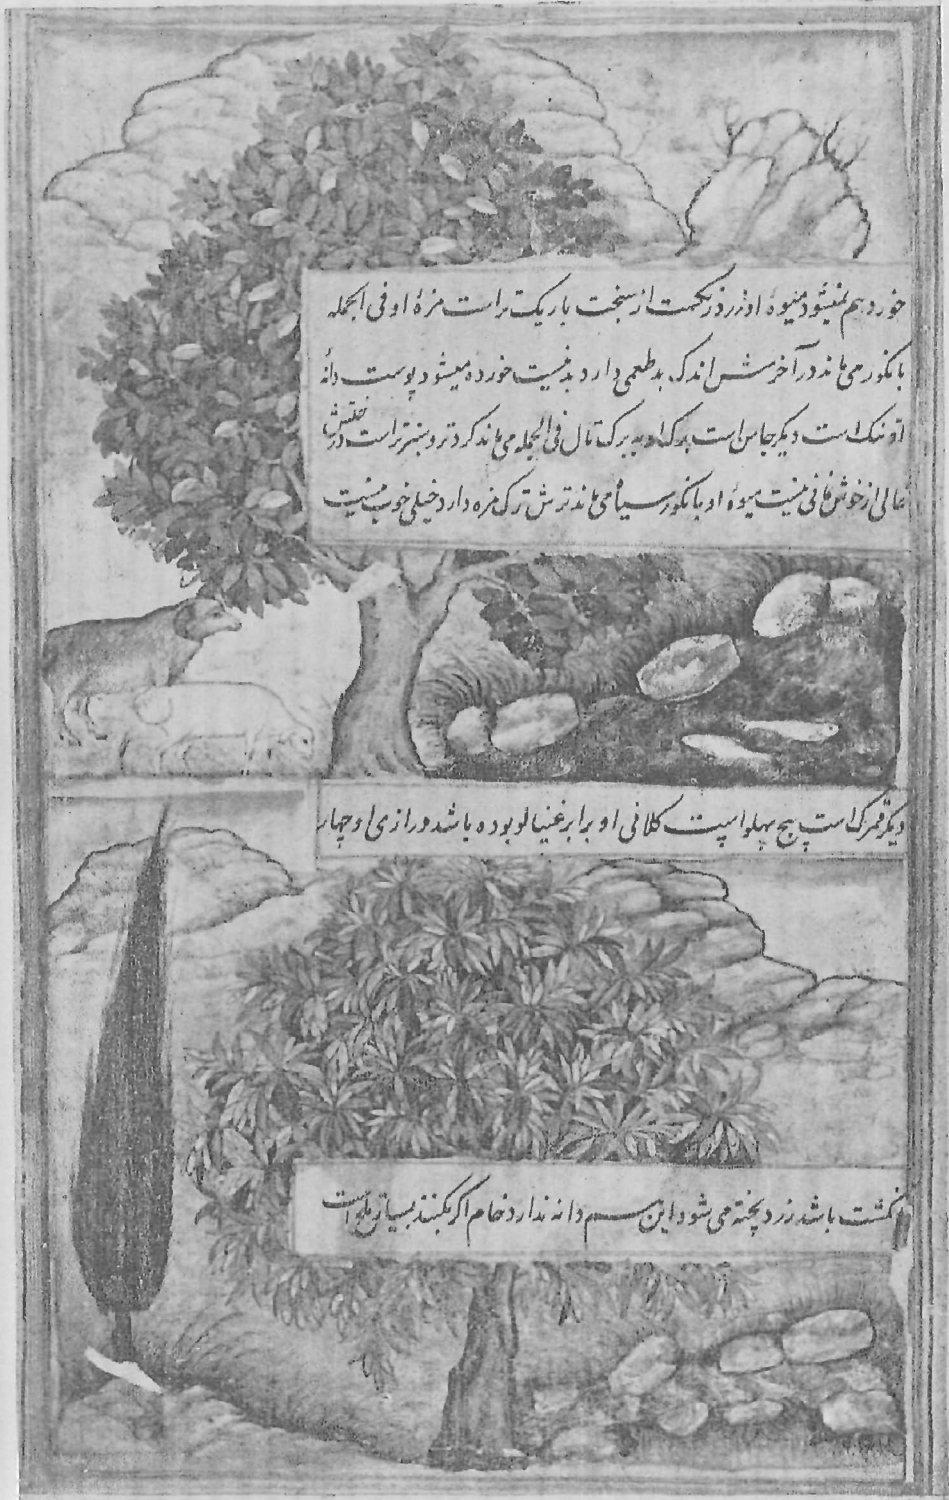 خورد هم نمیشود میوهٔ او زرد رنکست از سنجد باریک‌تر است مزهٔ او فی الجمله
بانکور می‌ماند در آخرش اندک بدطعمی دارد بد نیست خورده میشود پوست دانهٔ
او تنک است دیکر جامن است برک او به برک تال فی الجمله می‌ماند کردتر و سبزتر است درختش
خالی از خوش نمائی نیست میوهٔ او بانکور سیاه می‌ماند ترش ترک مزه دارد خیلی خوب نیست
دیکر قمرک است پنج پهلو است کلانی او برابر غینالو بوده باشد درازی او چهار
انکشت باشد زرد پخته می شود این هم دانه ندارد خام اکر بکنند بسیار تلخ است